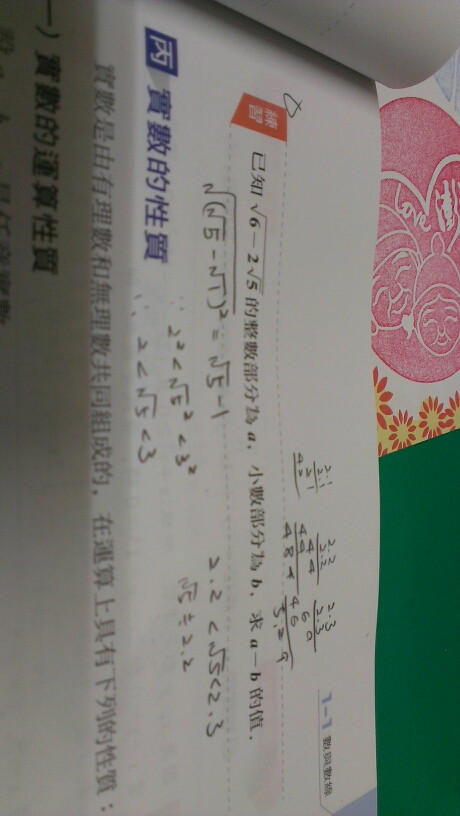 1-1 數與數線
2.1
2.1
2 1
4 2
2.2
2.2
4 4
4 4
4 8 4
2.3
2.3
6 9
4 6
5.2 9
練習
已知 √6-2√5 的整數部分為 a，小數部分為 b，求 a-b 的值．
√(√5-√1)² = √5-1
2²<√5²<3²
∴ 2<√5<3
2.2<√5<2.3
√5≑2.2
丙 實數的性質
實數是由有理數和無理數共同組成的．在運算上具有下列的性質：
一) 實數的運算性質
Love